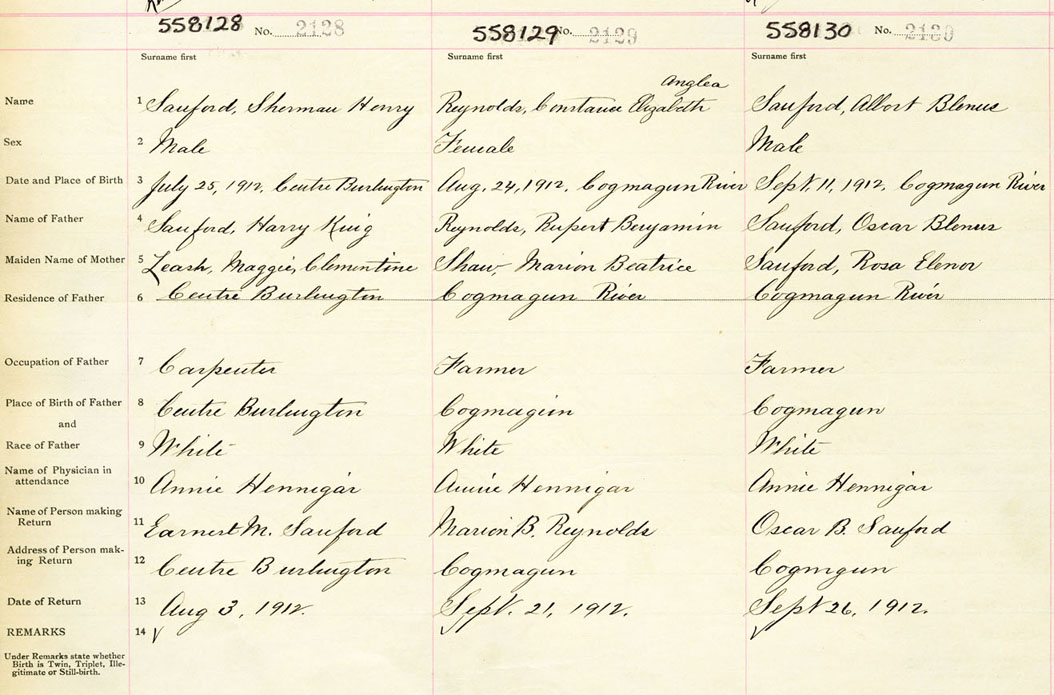 558128 No. 2128 558129 No. 2129 558130 No. 2130
Surname first Surname first Surname first
Anglea
Name 1 Sanford, Sherman Henry Reynolds, Constance Elizabeth Sanford, Albert Blenus
Sex 2 Male Female Male
Date and Place of Birth 3 July 25, 1912, Centre Burlington Aug. 24, 1912, Cogmagun River Sept. 11, 1912, Cogmagun River
Name of Father 4 Sanford, Harry King Reynolds, Rupert Benjamin Sanford, Oscar Blenus
Maiden Name of Mother 5 Leash, Maggie, Clementine Shaw, Marion Beatrice Sanford, Rosa Elenor
Residence of Father 6 Centre Burlington Cogmagun River Cogmagun River
Occupation of Father 7 Carpenter Farmer Farmer
Place of Birth of Father 8 Centre Burlington Cogmagun Cogmagun
and
Race of Father 9 White White White
Name of Physician in
attendance 10 Annie Hennigar Annie Hennigar Annie Hennigar
Name of Person making
Return 11 Earnest M. Sanford Marion B. Reynolds Oscar B. Sanford
Address of Person mak-
ing Return 12 Centre Burlington Cogmagun Cogmgun
Date of Return 13 Aug 3, 1912. Sept. 21, 1912. Sept 26, 1912.
REMARKS 14
Under Remarks state whether
Birth is Twin, Triplet, Ille-
gitimate or Still-birth.